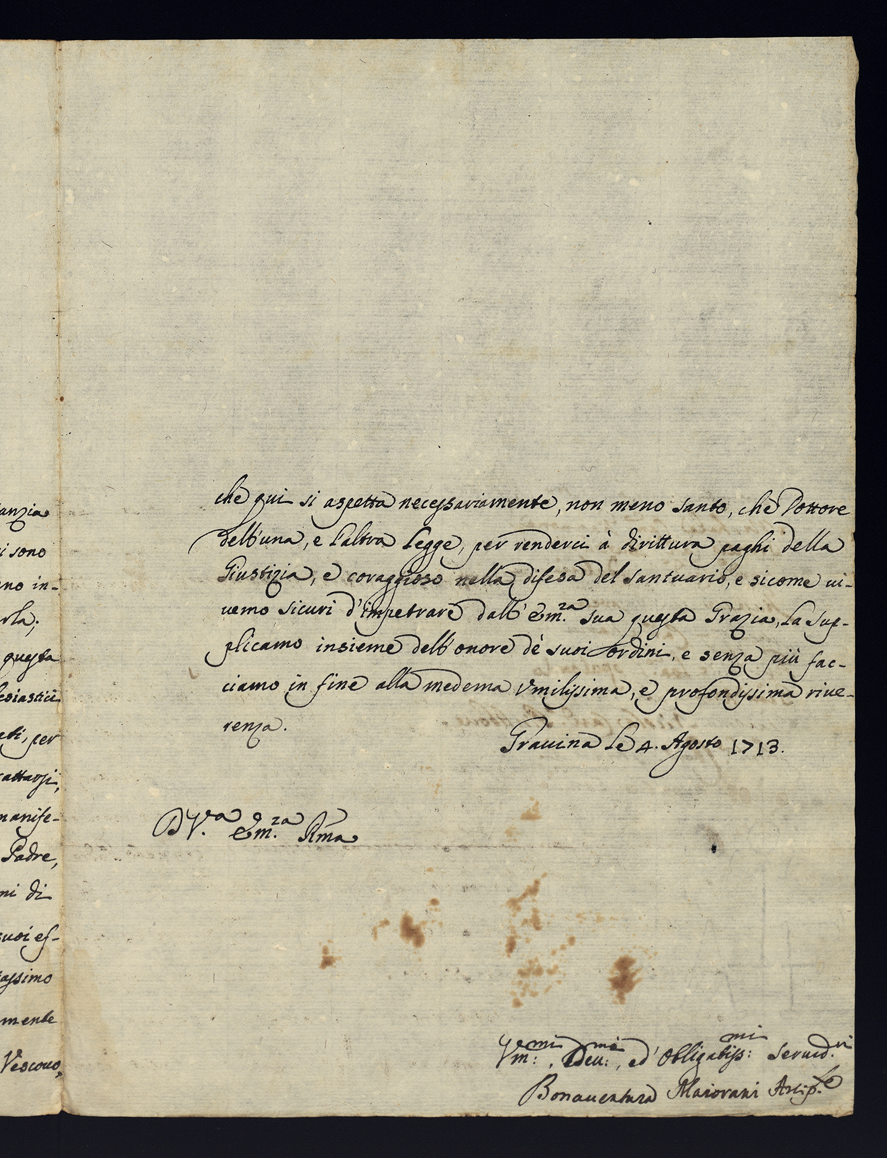 anzia
i sono
no in-
rla;
questa
lesiastici
ati, per
rattarsi,
manife-
Padre,
ni di
suoi ef-
tassimo
mente
Vescovo,
che qui si aspetta necessariamente, non meno santo, che Dottore
dell'una, e l'altra Legge, per renderci à dirittura paghi della
Giustizia, e coraggioso nella difesa del santuario, e sicome vi-
uemo sicuri d'impetrare dall' Em.za sua questa Grazia, la sup-
plicamo insieme dell'onore dè suoi ordini, e senza più fac-
ciamo in fine alla medema Vmilissima, e profondissima riue-
renza.
Grauina li 4. Agosto 1713.
D V.a Em.za Rma
Vm:mi, Deu:mi, ed' Obligatiss:mi Seruid.ri
Bonauentura Maiorani